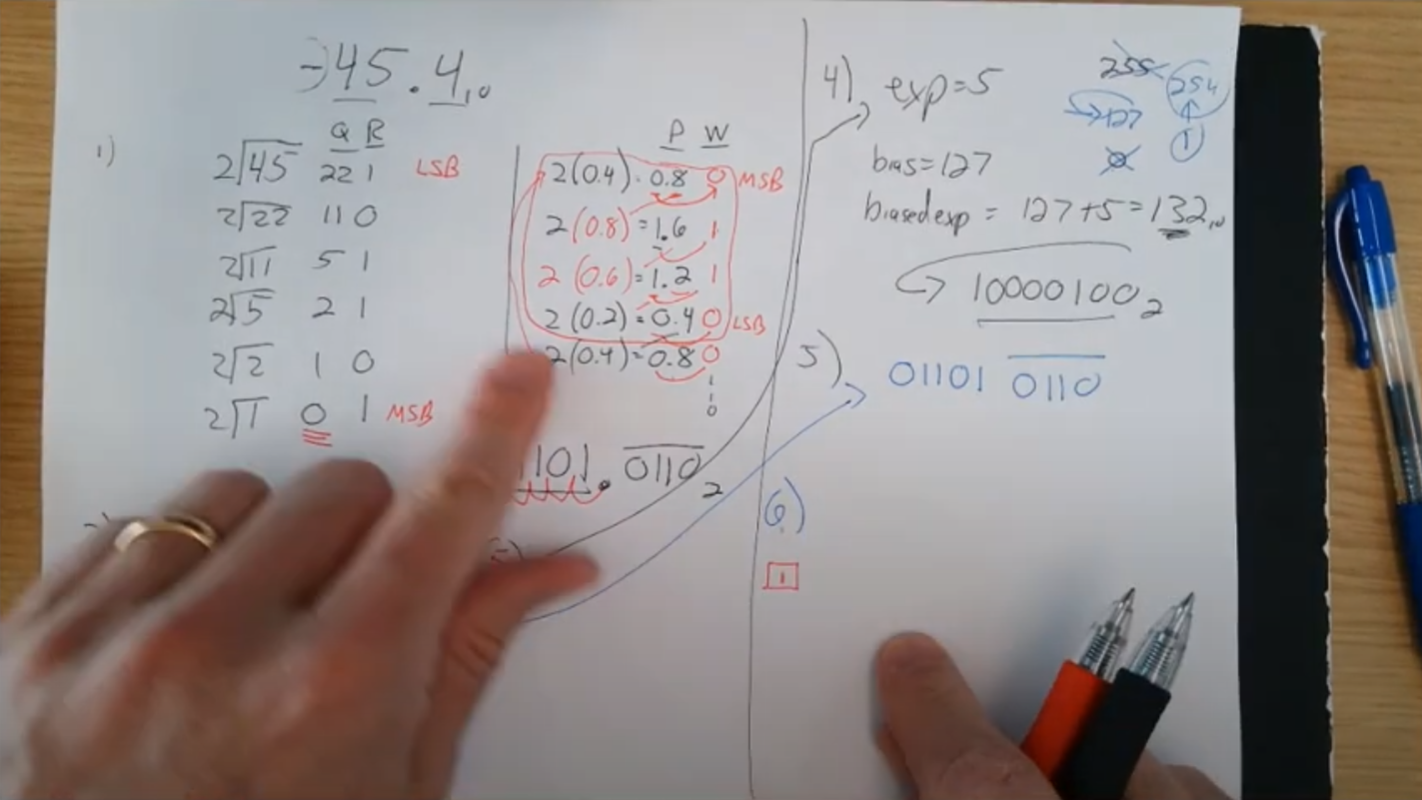 -45.4₁₀
1)
Q R
2√45 22 1 LSB
2√22 11 0
2√11 5 1
2√5 2 1
2√2 1 0
2√1 0 1 MSB
P W
2(0.4) = 0.8 0 MSB
2(0.8) = 1.6 1
2(0.6) = 1.2 1
2(0.2) = 0.4 0 LSB
2(0.4) = 0.8 0
1
1
0
1101.0110₂
4) exp=5
bias=127
biasedexp = 127+5=132₁₀
10000100₂
255
254
127
0
1
5) 01101 0110
6)
1